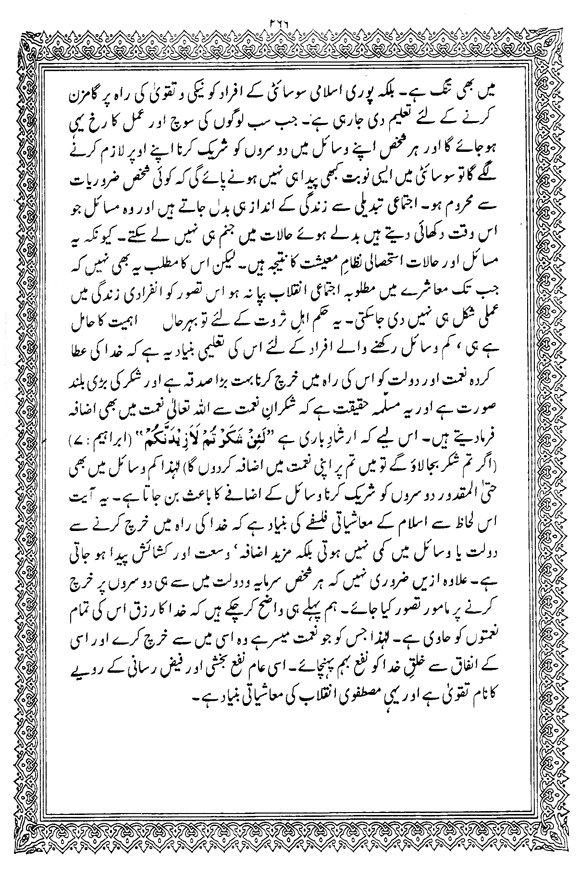 ۲۶۶
میں بھی تنگ ہے۔ بلکہ پوری اسلامی سوسائٹی کے افراد کو نیکی و تقویٰ کی راہ پر گامزن
کرنے کے لئے تعلیم دی جارہی ہے۔ جب سب لوگوں کی سوچ اور عمل کا رخ یہی
ہوجائے گا اور ہر شخص اپنے وسائل میں دوسروں کو شریک کرنا اپنے اوپر لازم کرنے
لگے گا تو سوسائٹی میں ایسی نوبت کبھی پیدا ہی نہیں ہونے پائے گی کہ کوئی شخص ضروریات
سے محروم ہو۔ اجتماعی تبدیلی سے زندگی کے انداز ہی بدل جاتے ہیں اور وہ مسائل جو
اس وقت دکھائی دیتے ہیں بدلے ہوئے حالات میں جنم ہی نہیں لے سکتے۔ کیونکہ یہ
مسائل اور حالات استحصالی نظامِ معیشت کا نتیجہ ہیں۔ لیکن اس کا مطلب یہ بھی نہیں کہ
جب تک معاشرے میں مطلوبہ اجتماعی انقلاب بپا نہ ہو اس تصور کو انفرادی زندگی میں
عملی شکل ہی نہیں دی جاسکتی۔ یہ حکم اہلِ ثروت کے لئے تو بہرحال اہمیت کا حامل
ہے ہی، کم وسائل رکھنے والے افراد کے لئے اس کی تعلیمی بنیاد یہ ہے کہ خدا کی عطا
کردہ نعمت اور دولت کو اس کی راہ میں خرچ کرنا بہت بڑا صدقہ ہے اور شکر کی بڑی بلند
صورت ہے اور یہ مسلّمہ حقیقت ہے کہ شکرانِ نعمت سے اللہ تعالیٰ نعمت میں بھی اضافہ
فرمادیتے ہیں۔ اس لیے کہ ارشادِ باری ہے ”لَئِنْ شَكَرْتُمْ لَأَزِيْدَنَّكُمْ“ (ابراہیم : ۷)
(اگر تم شکر بجالاؤ گے تو میں تم پر اپنی نعمت میں اضافہ کردوں گا) لہٰذا کم وسائل میں بھی
حتیٰ المقدور دوسروں کو شریک کرنا وسائل کے اضافے کا باعث بن جاتا ہے۔ یہ آیت
اس لحاظ سے اسلام کے معاشیاتی فلسفے کی بنیاد ہے کہ خدا کی راہ میں خرچ کرنے سے
دولت یا وسائل میں کمی نہیں ہوتی بلکہ مزید اضافہ‘ وسعت اور کشائش پیدا ہو جاتی
ہے۔ علاوہ ازیں ضروری نہیں کہ ہر شخص سرمایہ ودولت میں سے ہی دوسروں پر خرچ
کرنے پر مامور تصور کیا جائے۔ ہم پہلے ہی واضح کرچکے ہیں کہ خدا کا رزق اس کی تمام
نعمتوں کو حاوی ہے۔ لہٰذا جس کو جو نعمت میسر ہے وہ اسی میں سے خرچ کرے اور اسی
کے انفاق سے خلقِ خدا کو نفع بہم پہنچائے۔ اسی عام نفع بخشی اور فیض رسانی کے رویے
کا نام تقویٰ ہے اور یہی مصطفوی انقلاب کی معاشیاتی بنیاد ہے۔